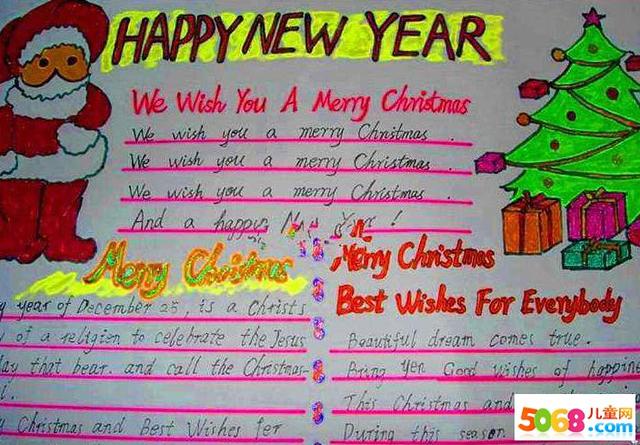 HAPPY NEW YEAR
We Wish You A Merry Christmas
We wish you a merry Christmas.
We wish you a merry Christmas.
We wish you a merry Christmas.
And a happy !
Merry Christmas
year of December 25, is a Christs
of a religion to celebrate the Jesus
that bear. and call the Christmas-
Christmas and Best Wishes for
Merry Christmas
Best Wishes For Everybody
Beautiful dream comes true.
Bring yen Good wishes of happine
This Christmas and
During this season
5068儿童网
.com